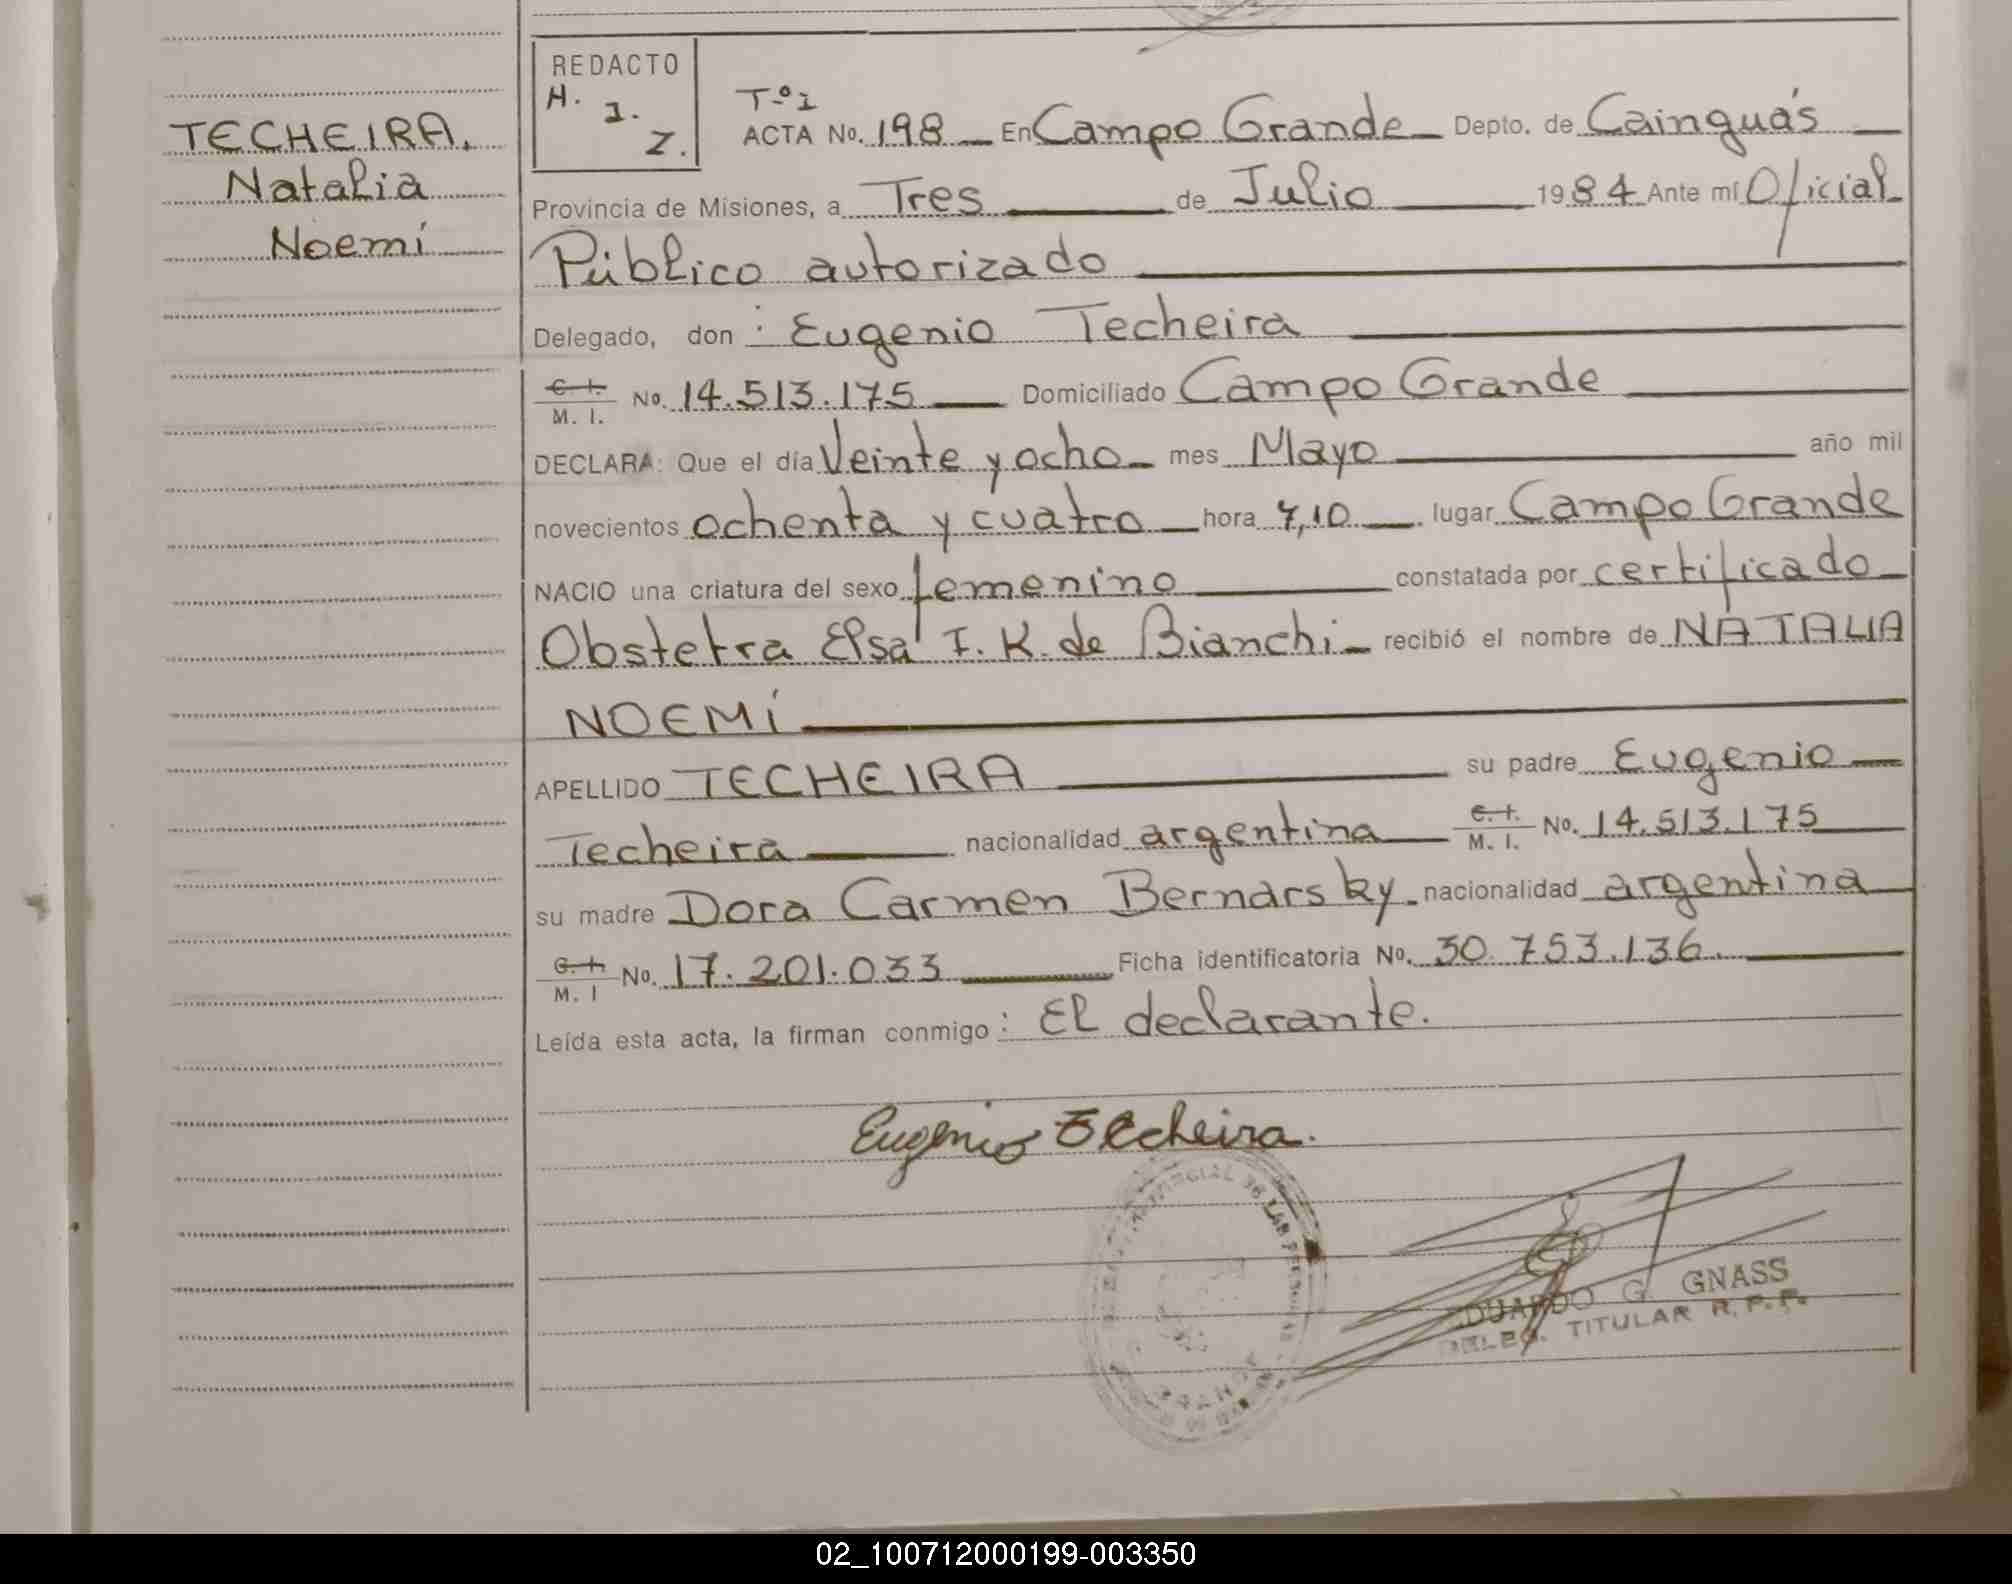 TECHEIRA,
Natalia
Noemí
REDACTO
H. J. Z.
Tº I
ACTA No. 198 En Campo Grande Depto. de Cainguás
Provincia de Misiones, a Tres de Julio 1984 Ante mí Oficial
Público autorizado
Delegado, don : Eugenio Techeira
C. I. / M. I. No. 14.513.175 Domiciliado Campo Grande
DECLARA: Que el día Veinte y ocho mes Mayo año mil
novecientos ochenta y cuatro hora 7,10 lugar Campo Grande
NACIO una criatura del sexo femenino constatada por certificado
Obstetra Elsa I. K. de Bianchi recibió el nombre de NATALIA
NOEMÍ
APELLIDO TECHEIRA su padre Eugenio
Techeira nacionalidad argentina C. I. / M. I. No. 14.513.175
su madre Dora Carmen Bernarsky nacionalidad argentina
C. I. / M. I No. 17.201.033 Ficha identificatoria No. 30.753.136
Leída esta acta, la firman conmigo : El declarante.
Eugenio Techeira.
EDUARDO G. GNASS
DELEG. TITULAR R.P.P.
02_100712000199-003350